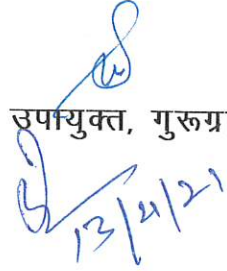 उपायुक्त, गुरूग्र
13/4/21